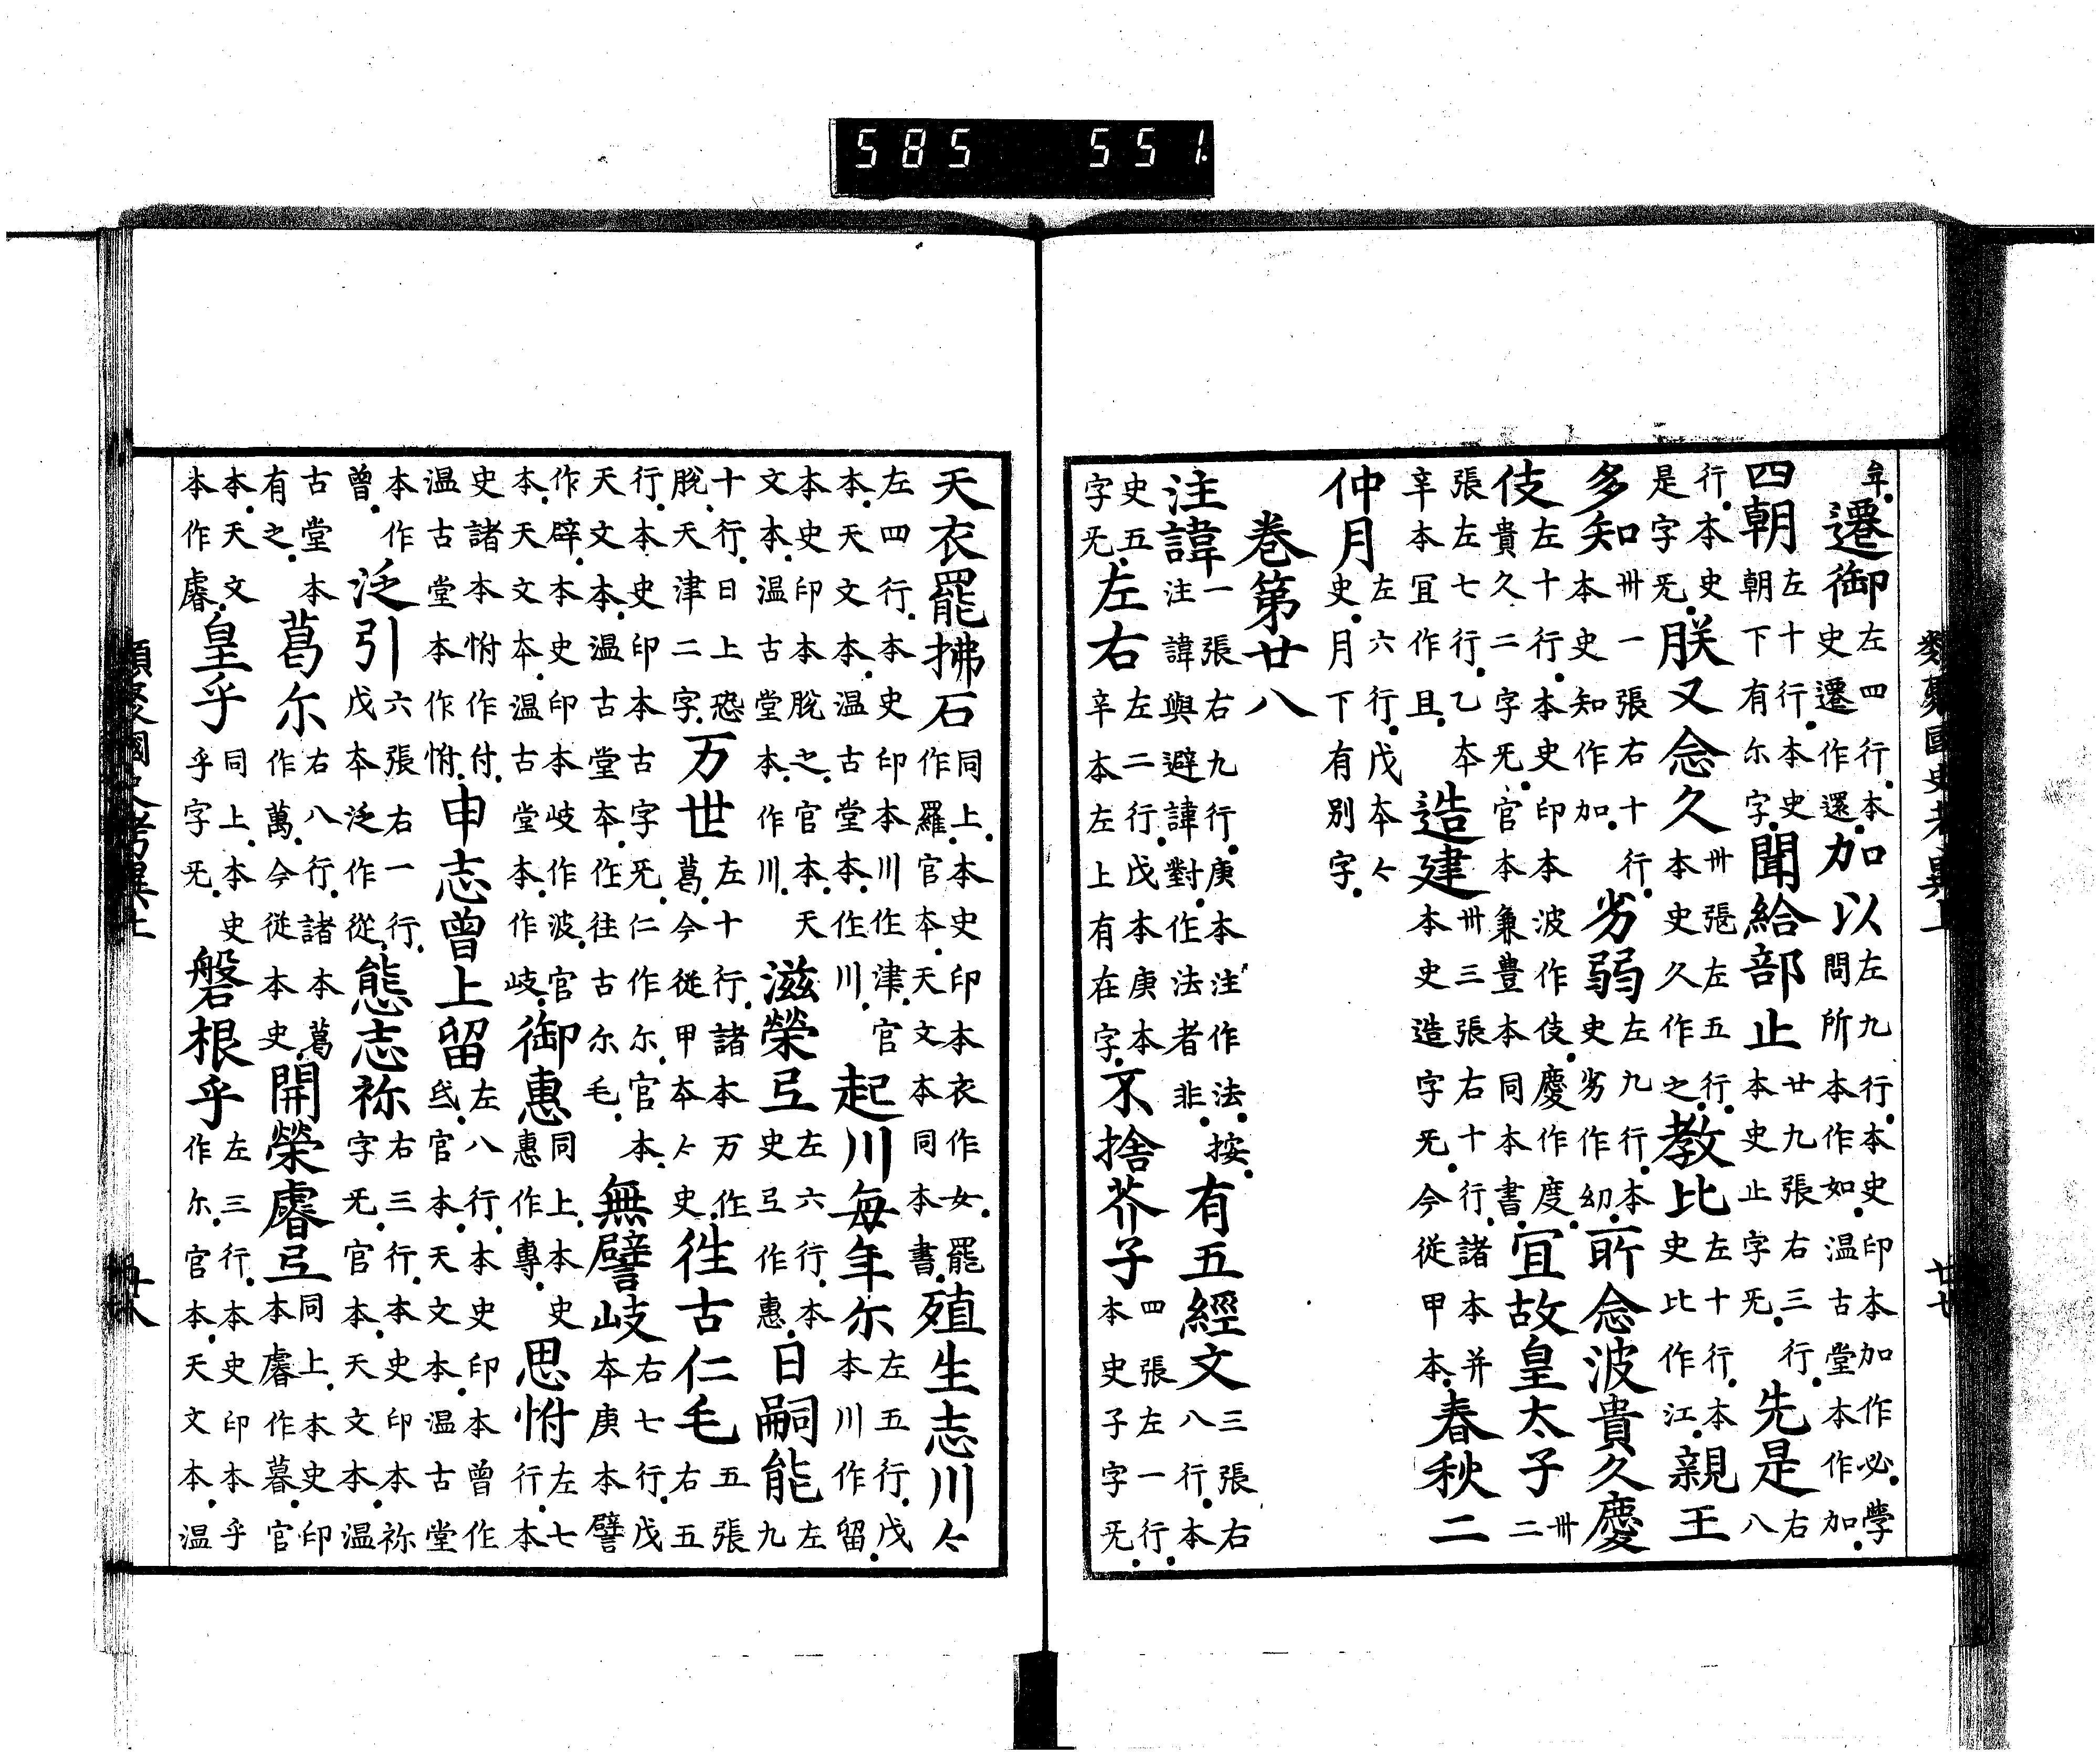 類聚國史考異上 廿七
牟。遷御左四行。本史遷作還。加以左九行。本史印本加作必。學問所本作如。温古堂本作加。
四朝左十行。本史朝下有尓字。聞給部止廿九張右三行。本史止字旡。先是右八
行。本史是字旡。朕又念久卅張左五行。本史久作之。教比左十行。本史比作江。親王
多知卅一張右十行。本史知作加。劣弱左九行。本史劣作㓜。所念波貴久慶
伎左十行。本史印本波作伎。慶作度。貴久二字旡。官本兼豊本同本書。宜故皇太子卅二
張左七行。乙本辛本宜作且。造建卅三張右十行。諸本并本史造字旡。今從甲本。春秋二
仲月左六行。戊本亽史。月下有別字。
巻第廿八
注諱一張右九行。庚本注作法。按注諱與避諱對。作法者非。有五經文三張右八行。本
史五字旡。左右左二行。戊本庚本辛本左上有在字。不捨芥子四張左一行。本史子字旡。
天衣罷拂石同上。本史印本衣作女。罷作羅。官本。天文本同本書。殖生志川亽
左四行。本史印本川作津。官本。天文本。温古堂本。作川。起川毎年尓左五行。戊本川作留。
本史印本脱之。官本。天文本。温古堂本。作川。滋榮弖左六行。本史弖作惠。日嗣能左九
十行。日上恐脱天津二字。万世左十行。諸本万作葛。今從甲本亽史。往古仁毛五張右五
行。本史印本古字旡。仁作尓。官本。天文本。温古堂本。作往古尓毛。無譬岐右七行。戊本庚本譬
作辟。本史印本岐作波。官本。天文本。温古堂本。作岐。御惠同上。本史惠作專。思㤔左七行。本
史諸本㤔作付。温古堂本作㤔。申志曽上留左八行。本史印本曽作氐。官本。天文本。温古堂
本作曽。泛引六張右一行。戊本泛作從。態志祢右三行。本史印本祢字旡。官本。天文本。温
古堂本有之。葛尓右八行。諸本葛作萬。今從本史。開榮膺弖同上。本史印本膺作暮。官
本。天文本。作膺。皇乎同上。本史乎字旡。磐根乎左三行。本史印本乎作尓。官本。天文本。温